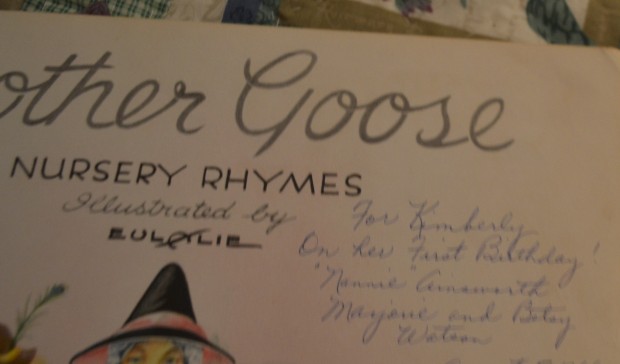 other Goose
NURSERY RHYMES
Illustrated by
EULALIE
For Kimberly
On her First Birthday!
"Nannie" Ainsworth
Marjorie and Betsy
Watson